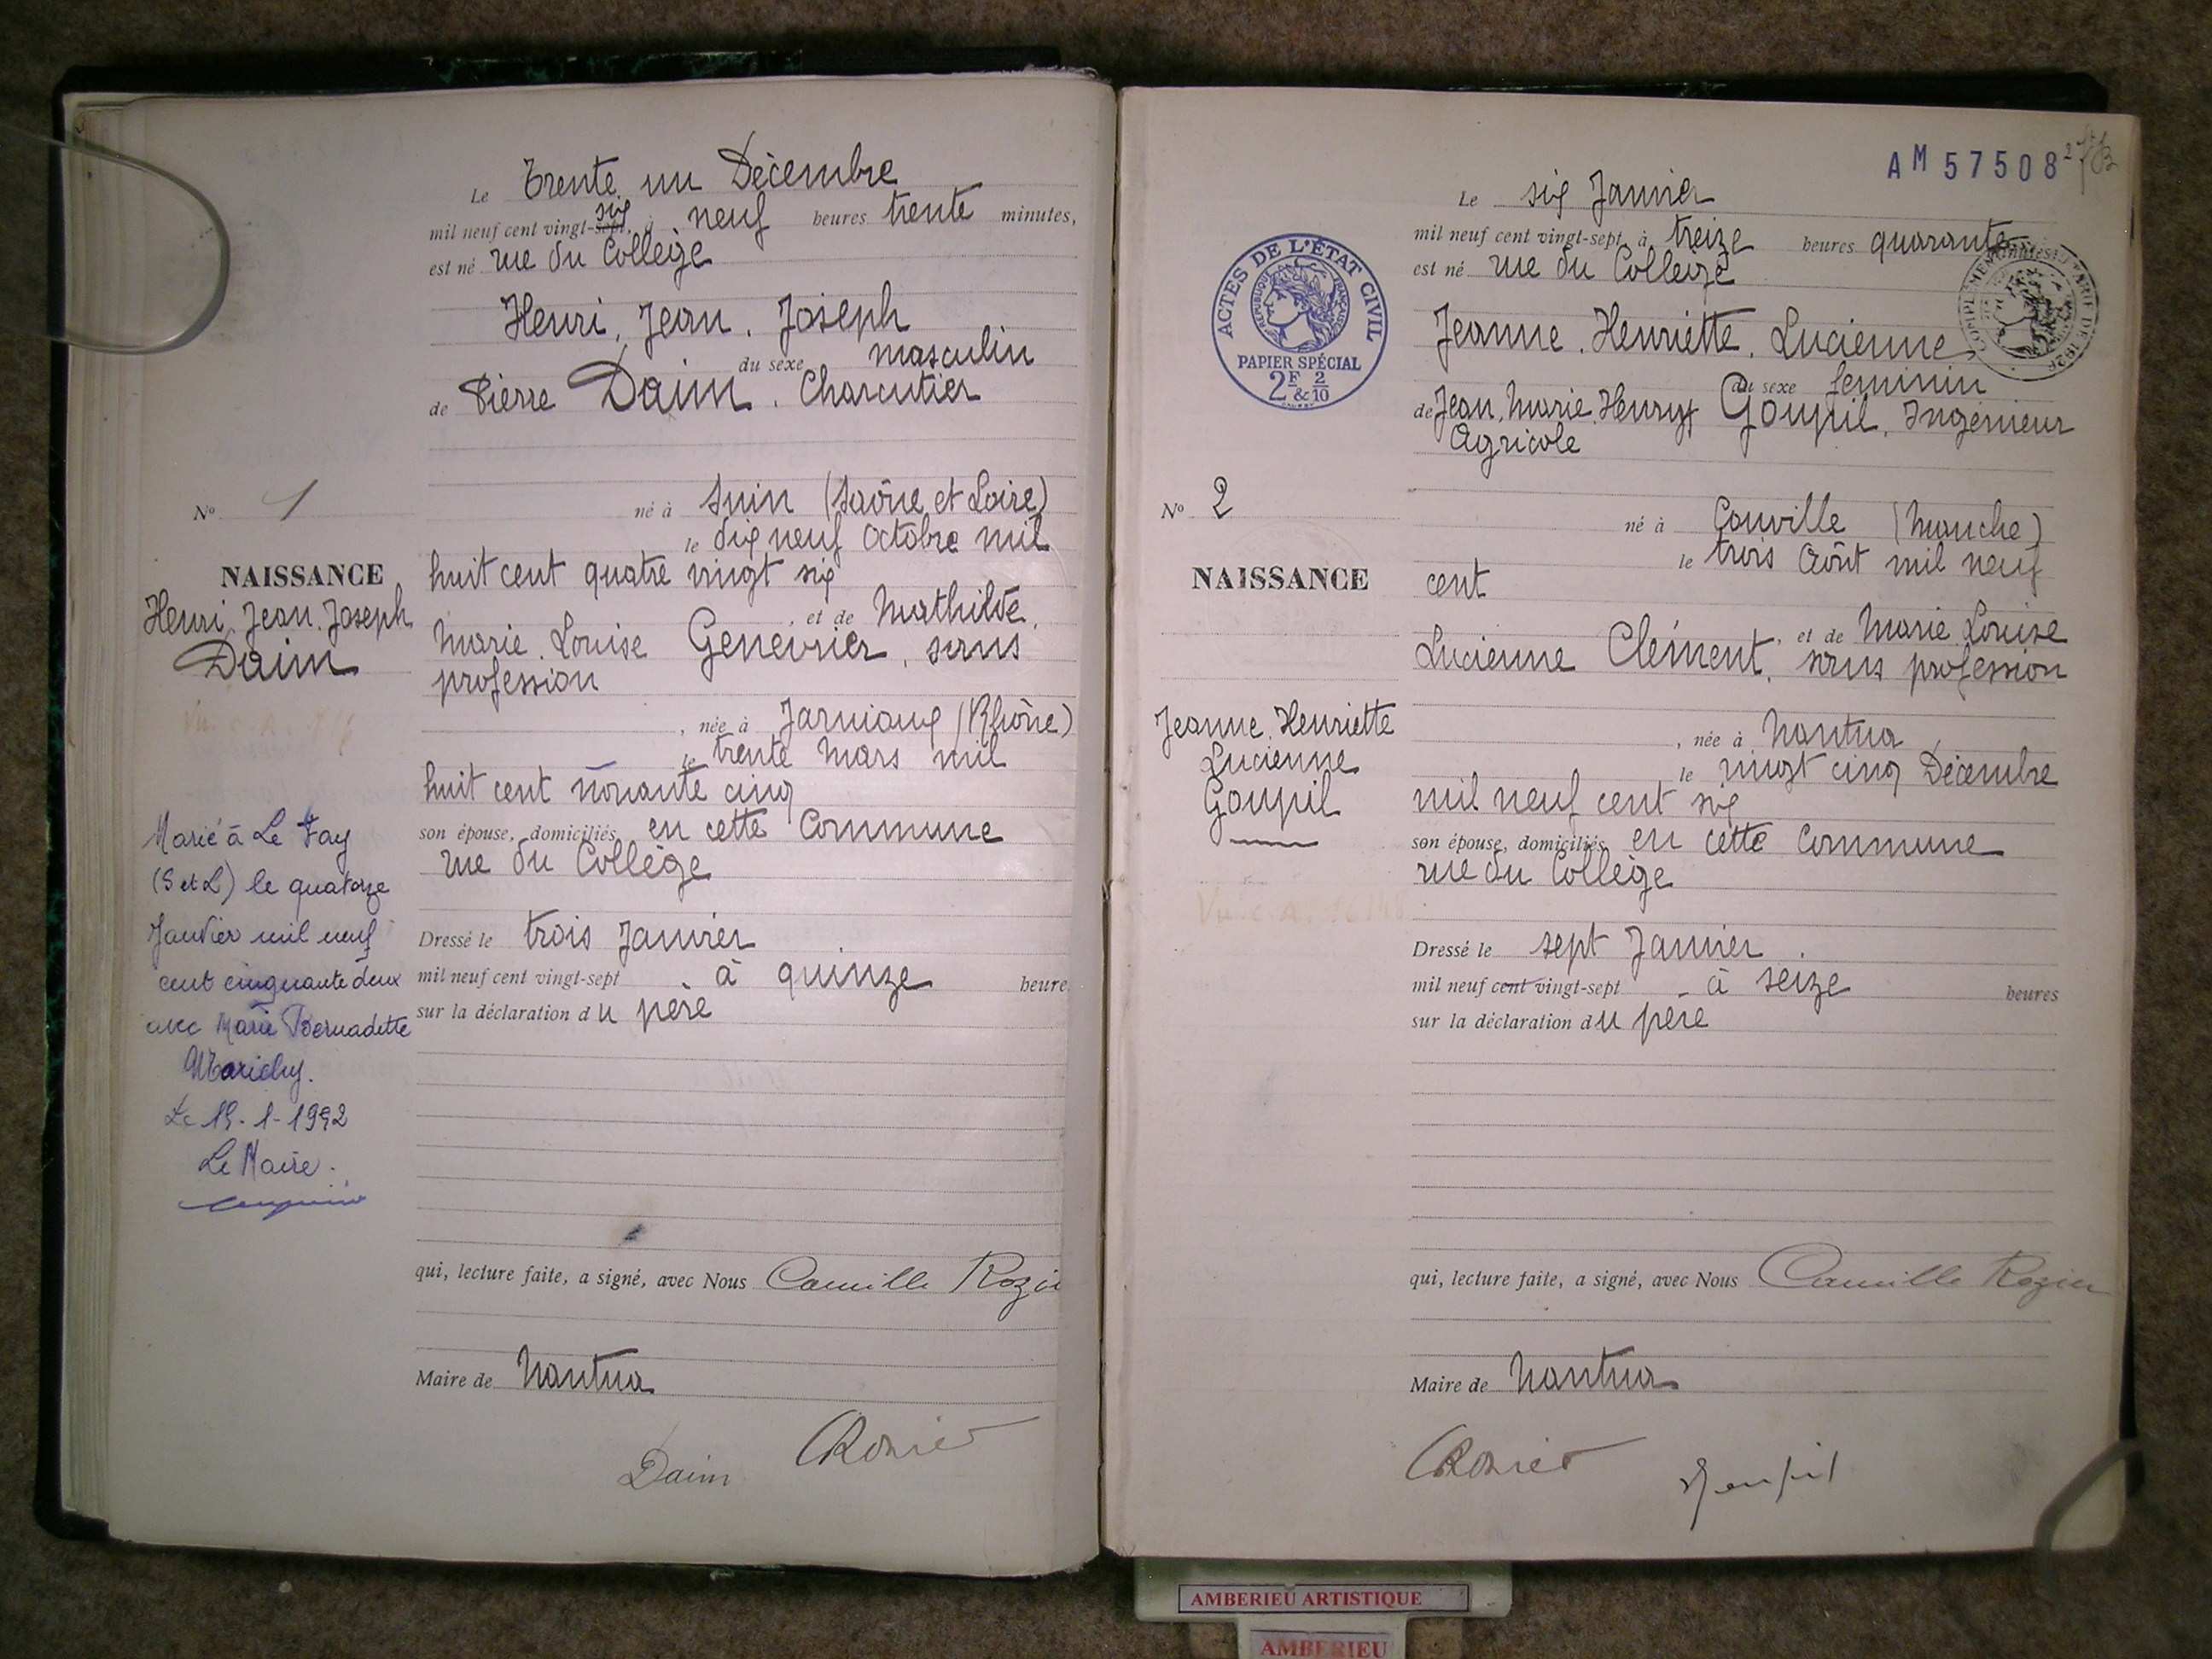 Le Trente un Décembre
mil neuf cent vingt-sept, six à neuf heures trente minutes,
est né rue du Collège
Henri, Jean, Joseph
du sexe masculin
de Pierre Daim, Charcutier
né à Suin (Saône et Loire)
le dix neuf Octobre mil
huit cent quatre vingt six
, et de Mathilde,
Marie, Louise Genevrier, sans
profession
, née à Jarnioux (Rhône)
le trente Mars mil
huit cent nonante cinq
son épouse, domiciliés en cette Commune
rue du Collège
Dressé le trois Janvier
mil neuf cent vingt-sept à quinze heure
sur la déclaration du père
qui, lecture faite, a signé, avec Nous Camille Rozie
Maire de Nantua
Daim CRozier
N° 1
NAISSANCE
Henri, Jean, Joseph
Daim
Marié à Le Fay
(S et L) le quatorze
Janvier mil neuf
cent cinquante deux
avec Marie Bernadette
Marichy.
Le 15-1-1952
Le Maire.
AM 57508
2
Le six Janvier
mil neuf cent vingt-sept à treize heures quarante minutes
est né rue du Collège
Jeanne, Henriette, Lucienne
du sexe féminin
de Jean, Marie, Henry Goupil, Ingénieur
Agricole
né à Couville (Manche)
le trois Août mil neuf
cent
, et de Marie, Louise
Lucienne Clément, sans profession
, née à Nantua
le vingt cinq Décembre
mil neuf cent six
son épouse, domiciliés en cette Commune
rue du Collège
Dressé le sept Janvier
mil neuf cent vingt-sept à seize heures
sur la déclaration du père
qui, lecture faite, a signé, avec Nous Camille Rozier
Maire de Nantua
CRozier Goupil
ACTES DE L'ÉTAT CIVIL
RÉPUBLIQUE FRANÇAISE
PAPIER SPÉCIAL
2F & 2/10
N° 2
NAISSANCE
Jeanne, Henriette
Lucienne
Goupil
AMBERIEU ARTISTIQUE
AMBERIEU